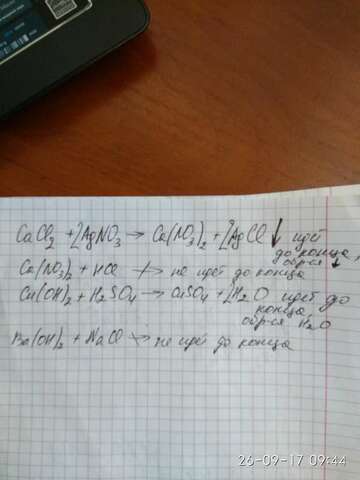 CaCl₂ + 2AgNO₃ → Ca(NO₃)₂ + 2AgCl ↓ идёт
до конца,
обр-ся ↓
Ca(NO₃)₂ + HCl ↛ не идёт до конца
Cu(OH)₂ + H₂SO₄ → CuSO₄ + 2H₂O идёт до
конца,
обр-ся H₂O
Ba(OH)₂ + NaCl ↛ не идёт до конца
26-09-17 09:44